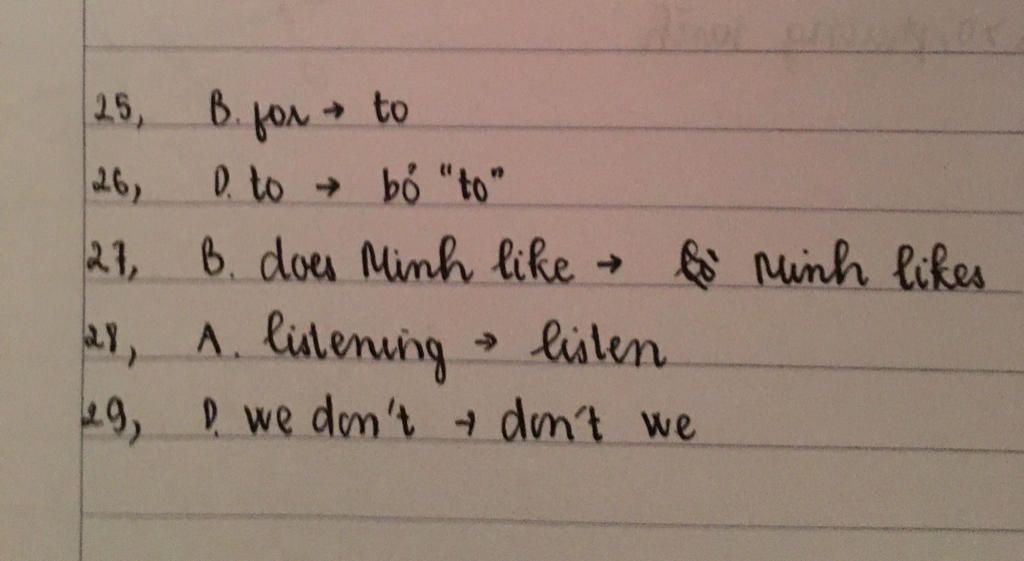 25, B. for → to
26, D. to → bỏ "to"
27, B. does Minh like → Minh likes
28, A. listening → listen
29, D. we don't → don't we